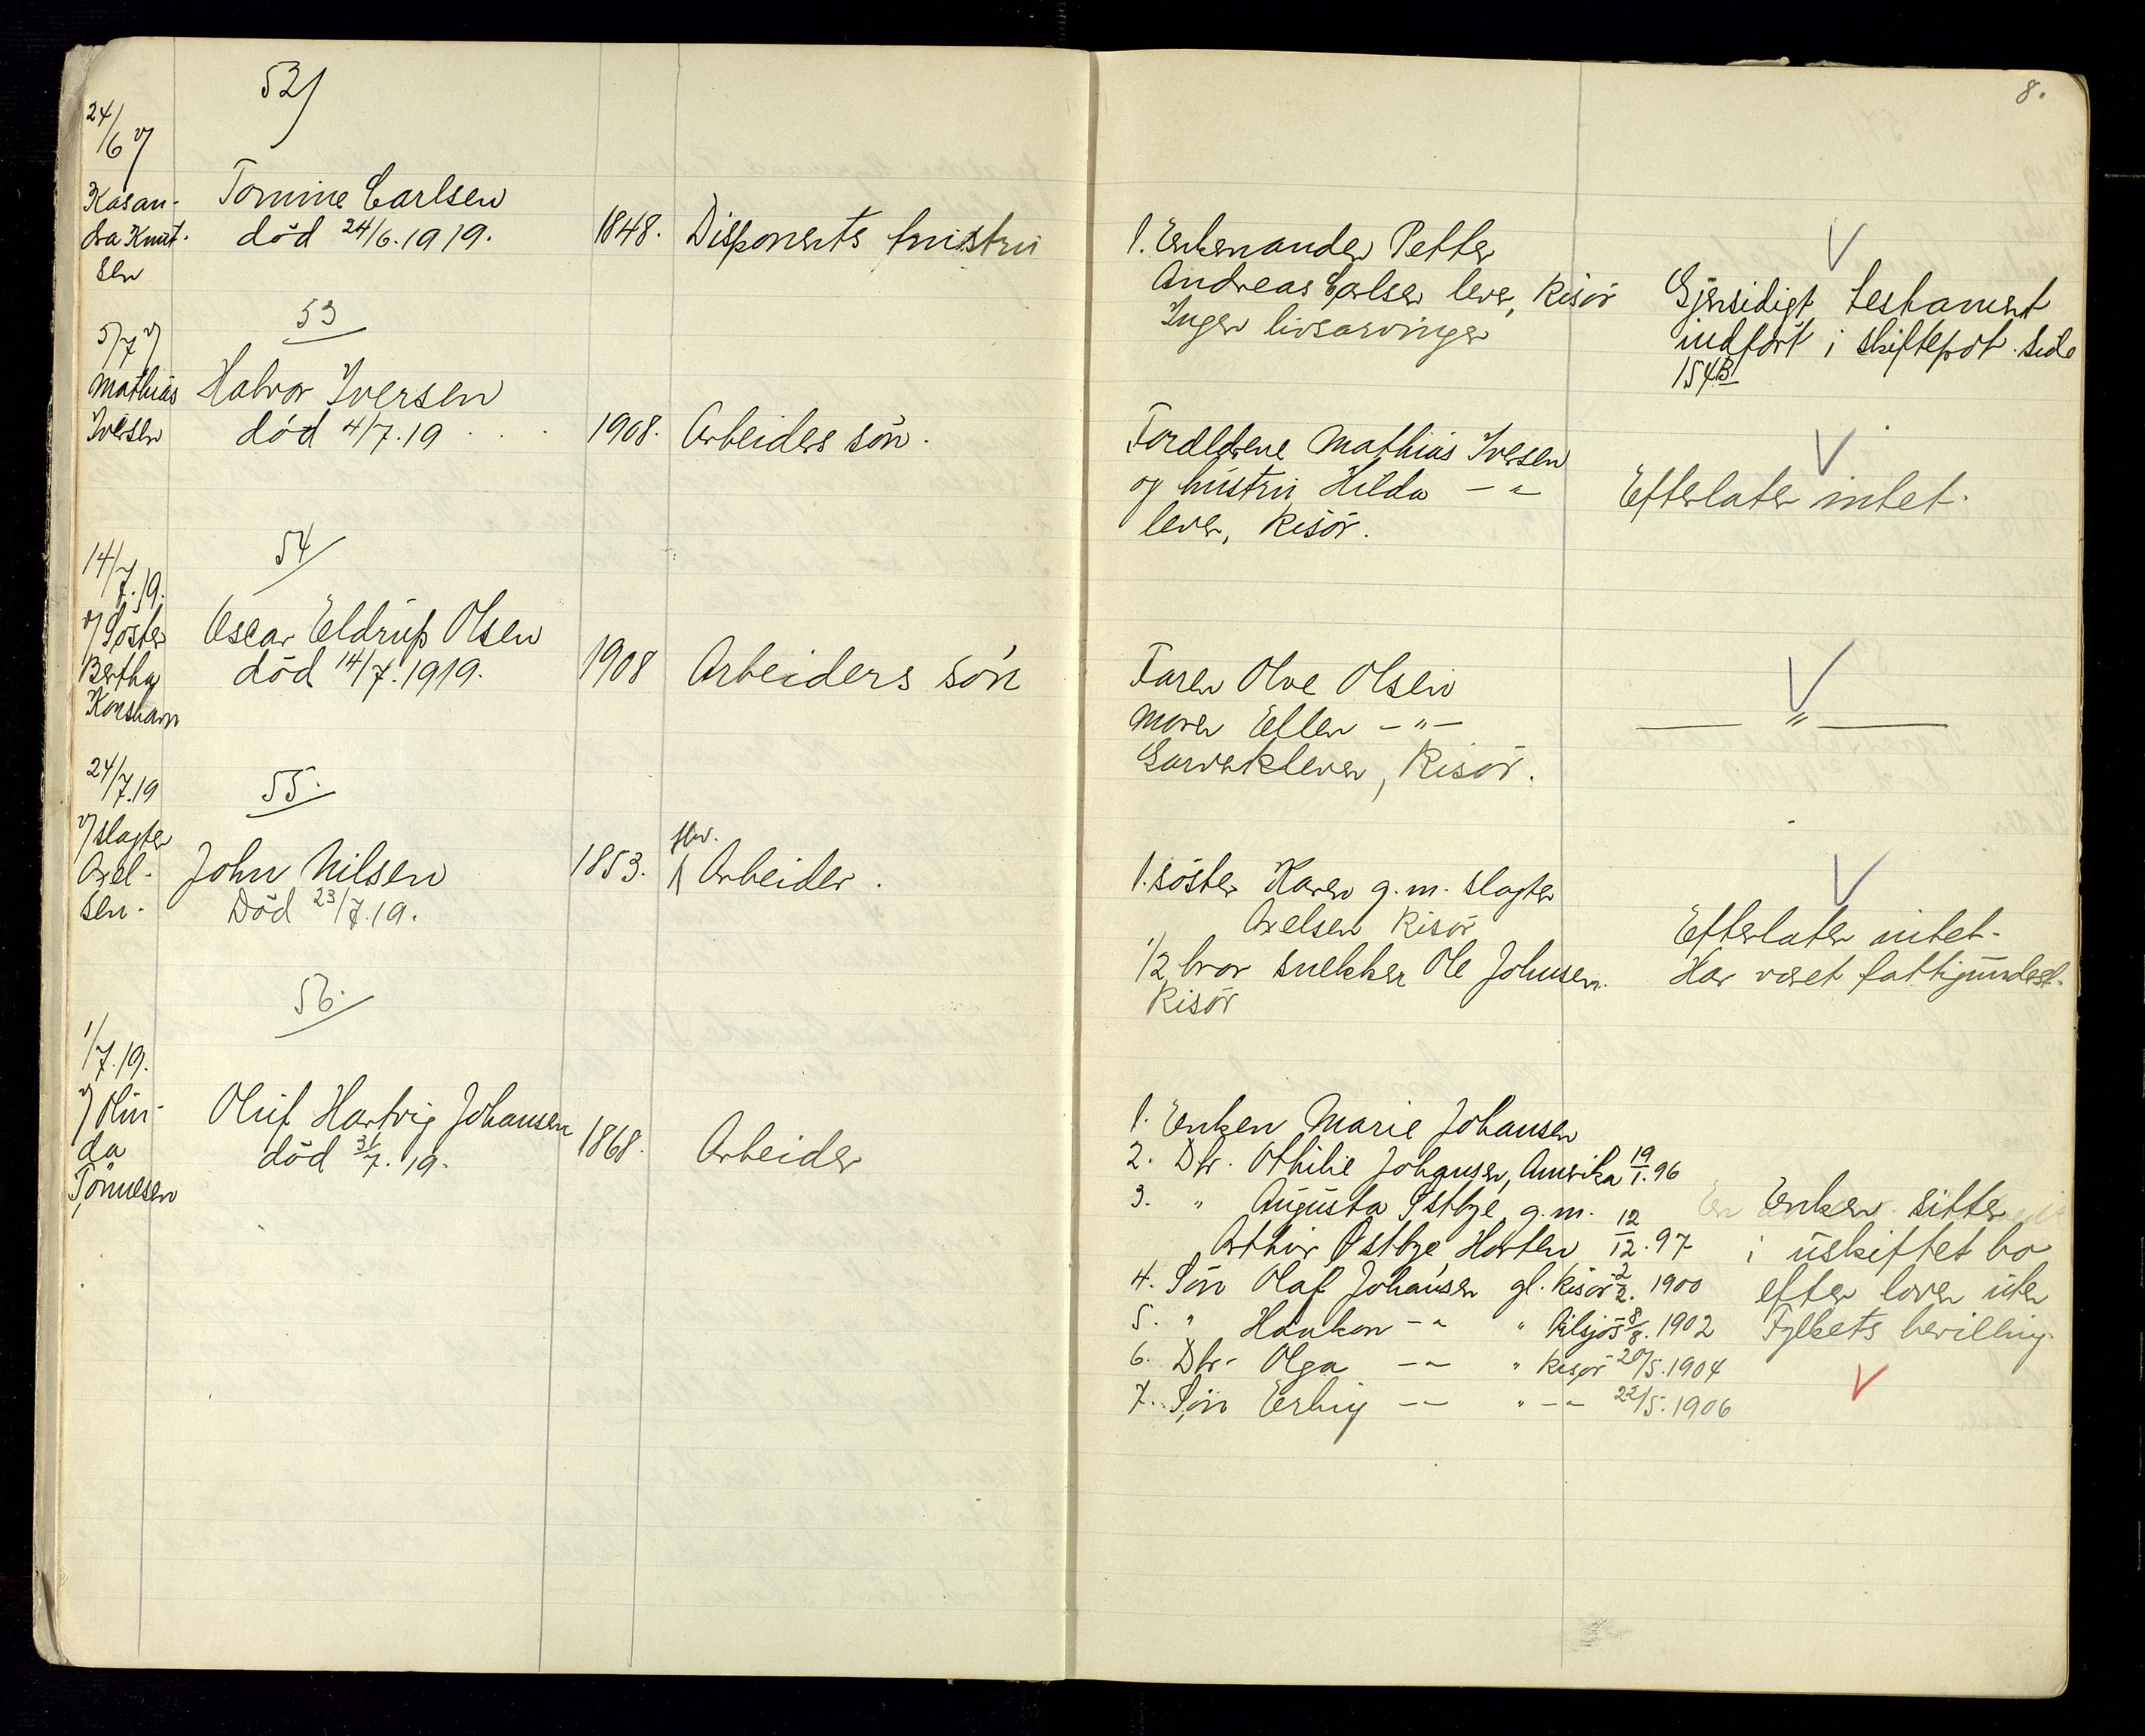 8.
52/
24/6 v/
Kasan-
dra Knut-
sen
Tomine Carlsen
død 24/6.1919.
1848.
Disponents hustru
1. Enkemanden Petter
Andreas Carlsen lever, Risör
Ingen livsarvinger
Gjensidigt testament
indført i skifteprot. side
154B
53
5/7 v/
Mathias
Iversen
Halvor Iversen
död 4/7.19
1908.
Arbeiders sön.
Forældrene Mathias Iversen
og hustru Hilda — " —
lever, Risör.
Efterlater intet.
54
14/7.19.
v/ Söster
Bertha
Korshavn
Oscar Eldrup Olsen
död 14/7.1919.
1908
Arbeiders sön
Faren Olve Olsen
Moren Ellen — " —
lever, Risör.
— " —
55.
24/7.19
v/ slagter
Axel-
sen.
John Nilsen
Död 23/7.19.
1853.
fhv.
Arbeider.
1. söster Karen g.m. slagter
Axelsen Risör
1/2 bror snekker Ole Johnsen.
Risör
Efterlater intet.
Har været fattigunderst.
56.
1/7.19.
v/ Olin-
da
Tönnesen
Oluf Hartvig Johansen
död 31/7.19.
1868.
Arbeider
1. Enken Marie Johansen
2. Dtr. Othilie Johansen, Amerika 19/1.96
3. " Augusta Østbye g.m.
Arthur Østbye Horten 12/12.97
4. Sön Olaf Johansen gl. Risör 2/2.1900
5. " Haakon — " — " 8/8.1902
6. Dtr. Olga — " — " Risør 20/5.1904
7. Søn Erling — " — " — " — 22/5.1906
Enken sitter
i uskiftet bo
efter loven uten
Fylkets bevilling.